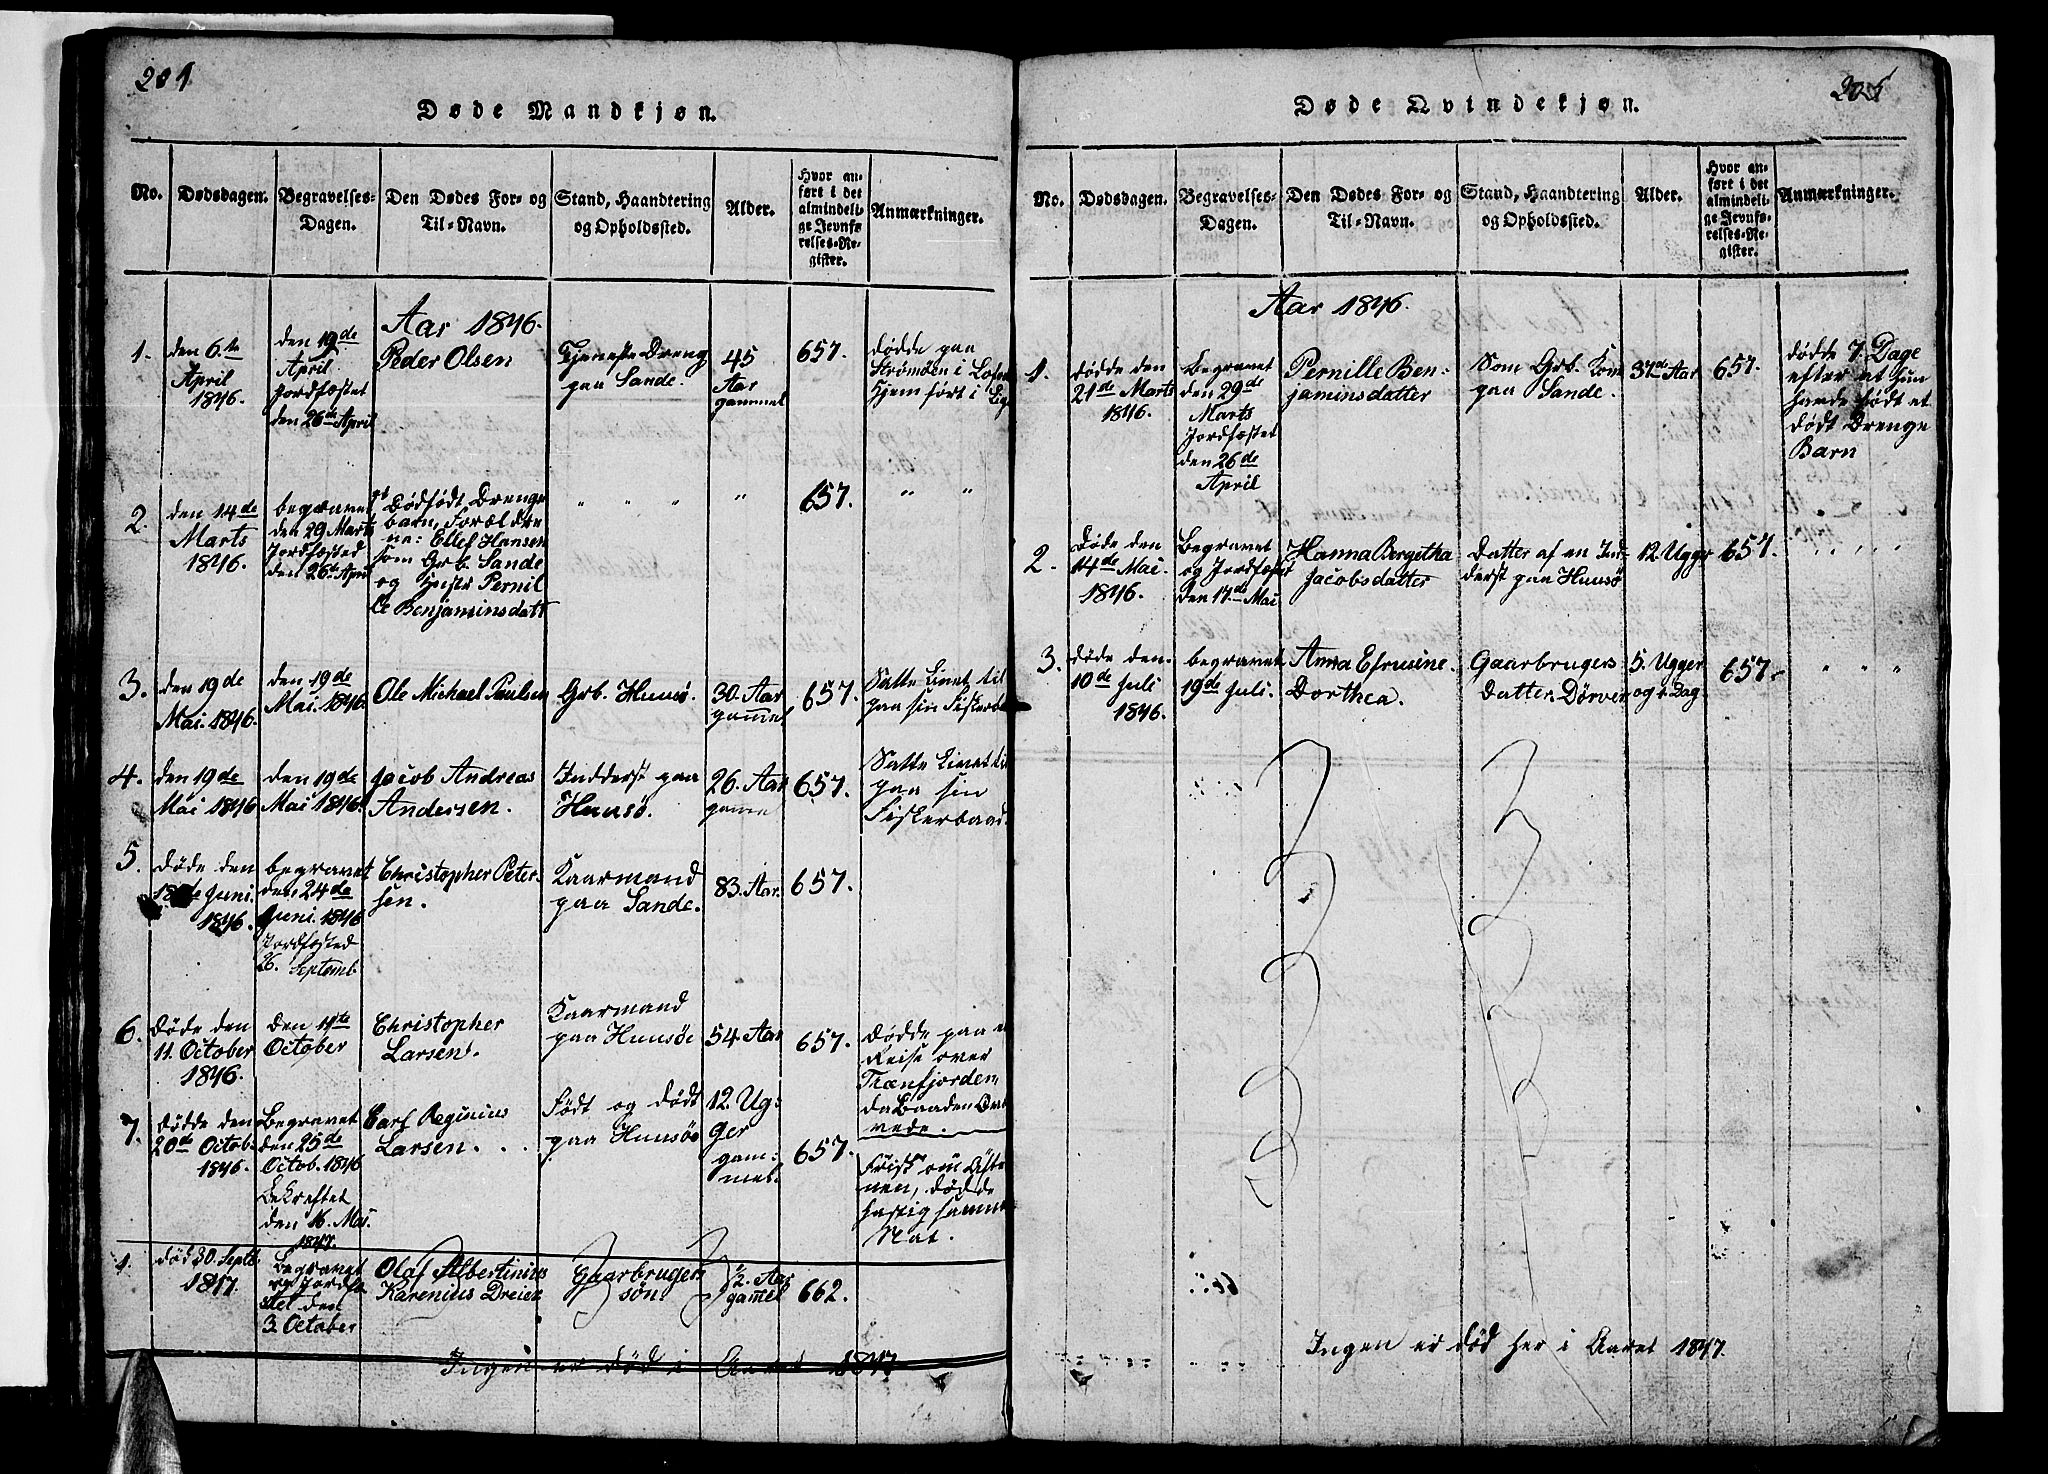 201
Døde Mandkjøn.
No.
Dødsdagen.
Begravelses-
Dagen.
Den Dødes For- og
Til-Navn.
Stand, Haandtering
og Opholdssted.
Alder.
Hvor an-
ført i det
almindeli-
ge Jevnfø-
relses-Re-
gister.
Anmærkninger.
Aar 1846.
1.
den 6.te
April
1846.
den 19de
April
Jordfæstet
den 26de April
Peder Olsen
Tjeneste Dreng
paa Sande.
45
Aar
gammel
657.
dødde paa
Strømøen i
hjemført i
2.
den 14de
Marts
1846.
begravet
den 29 Marts
Jordfæsted
den 26de April
et Dødfødt Drenge
barn, Foreldre
ne: Ellef Hansen
som Grb. Sande
og Hustr Pernil
le Benjaminsdatt
" " "
"
657.
" "
3.
den 19de
Mai. 1846.
den 19de
Mai. 1846
Ole Michael Paulsen
Grb. Huusø.
30. Aar
gammel
657.
Satte Livet til
paa sin Fiskerba
4.
den 19de
Mai 1846
den 19de
Mai 1846.
Jacob Andreas
Andersen.
Inderst paa
Huusø.
26. Aar
gamme
657.
Satte Livet til
paa sin
Fiskerbaad.
5.
døde den
18de Juni.
1846.
begravet
den 24de
Juni. 1846
Jordfæsted
26. Septemb.
Christopher Peter-
sen.
Kaarmand
paa Sande.
83. Aar.
657.
6.
døde den
11. October
1846.
den 11te
October
Christopher
Larsen.
Kaarmand
paa Huusøe
54. Aar
657.
dødde paa en
Reise over
Trænfjorden
da Baaden
vede.
7.
dødde den
20de Octob.
1846.
Begravet
den 25de
Octob. 1846
Bekræftet
den 16. Mai.
1847.
Carl Reginius
Larsen. . .
Født og død
paa Huusøe
12. Ug-
ger
gam-
mel.
657.
Frisk om Afte
nen, dødde
hastig samme
Nat.
1.
død 30. Septb.
1847.
Begravet
og Jordfæ
stet den
3 October
Olaf Albertinius
Karenius Dreier
Gaarbruger
søn
1/2. Aar
gamel
662.
Ingen er død i Aaret 1847
205
Døde Qvindekjøn.
No.
Dødsdagen.
Begravelses-
Dagen.
Den Dødes For- og
Til-Navn.
Stand, Haandtering
og Opholdssted.
Alder.
Hvor an-
ført i det
almindeli-
ge Jevnfø-
relses-Re-
gister.
Anmærkninger.
Aar 1846.
1.
dødde den
21de Marts
1846.
Begravet
den 29de
Marts
Jordfæsted
den 26de
April
Pernille Ben-
jaminsdatter
Som Grb. Kone
paa Sande.
37de Aar
657.
dødde 7 Dage
efter at hun
havde født et
dødt Drenge
Barn
2.
Døde den
14de Mai.
1846.
Begravet
og Jordfæstet
den 17.de Mai
Hanna Bergitha
Jacobsdatter
Datter af en In-
derst paa Huusø
12. Ugger
657.
" " " "
3.
døde den
10de Juli
1846.
begravet
19de Juli.
Anna Efrusine
Dorthea.
Gaarbrugers
Datter. Dørvær
5. Ugger
og 1. Dag
657.
" " "
Ingen er død her i Aaret 1847.